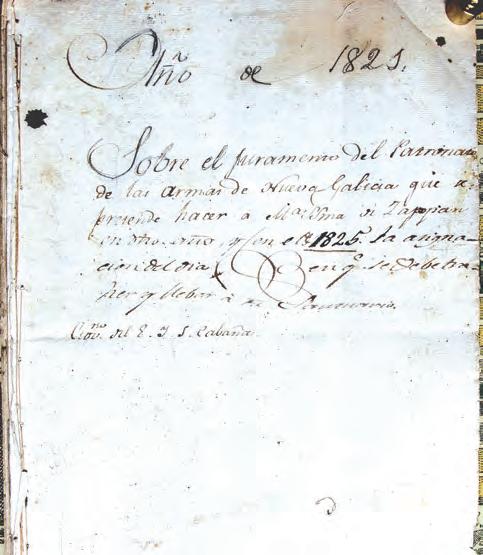 Año de 1821.
Sobre el juramento del Patronato
de las armas de Nueva Galicia que se
pretende hacer a Ma. SSma. de Zappan
en otro año, y con el de 1825. la asigna-
cion del dia en q. se debe tra-
her y llebar a su Santuario.
Govno. del E. I. S. Cabañas.